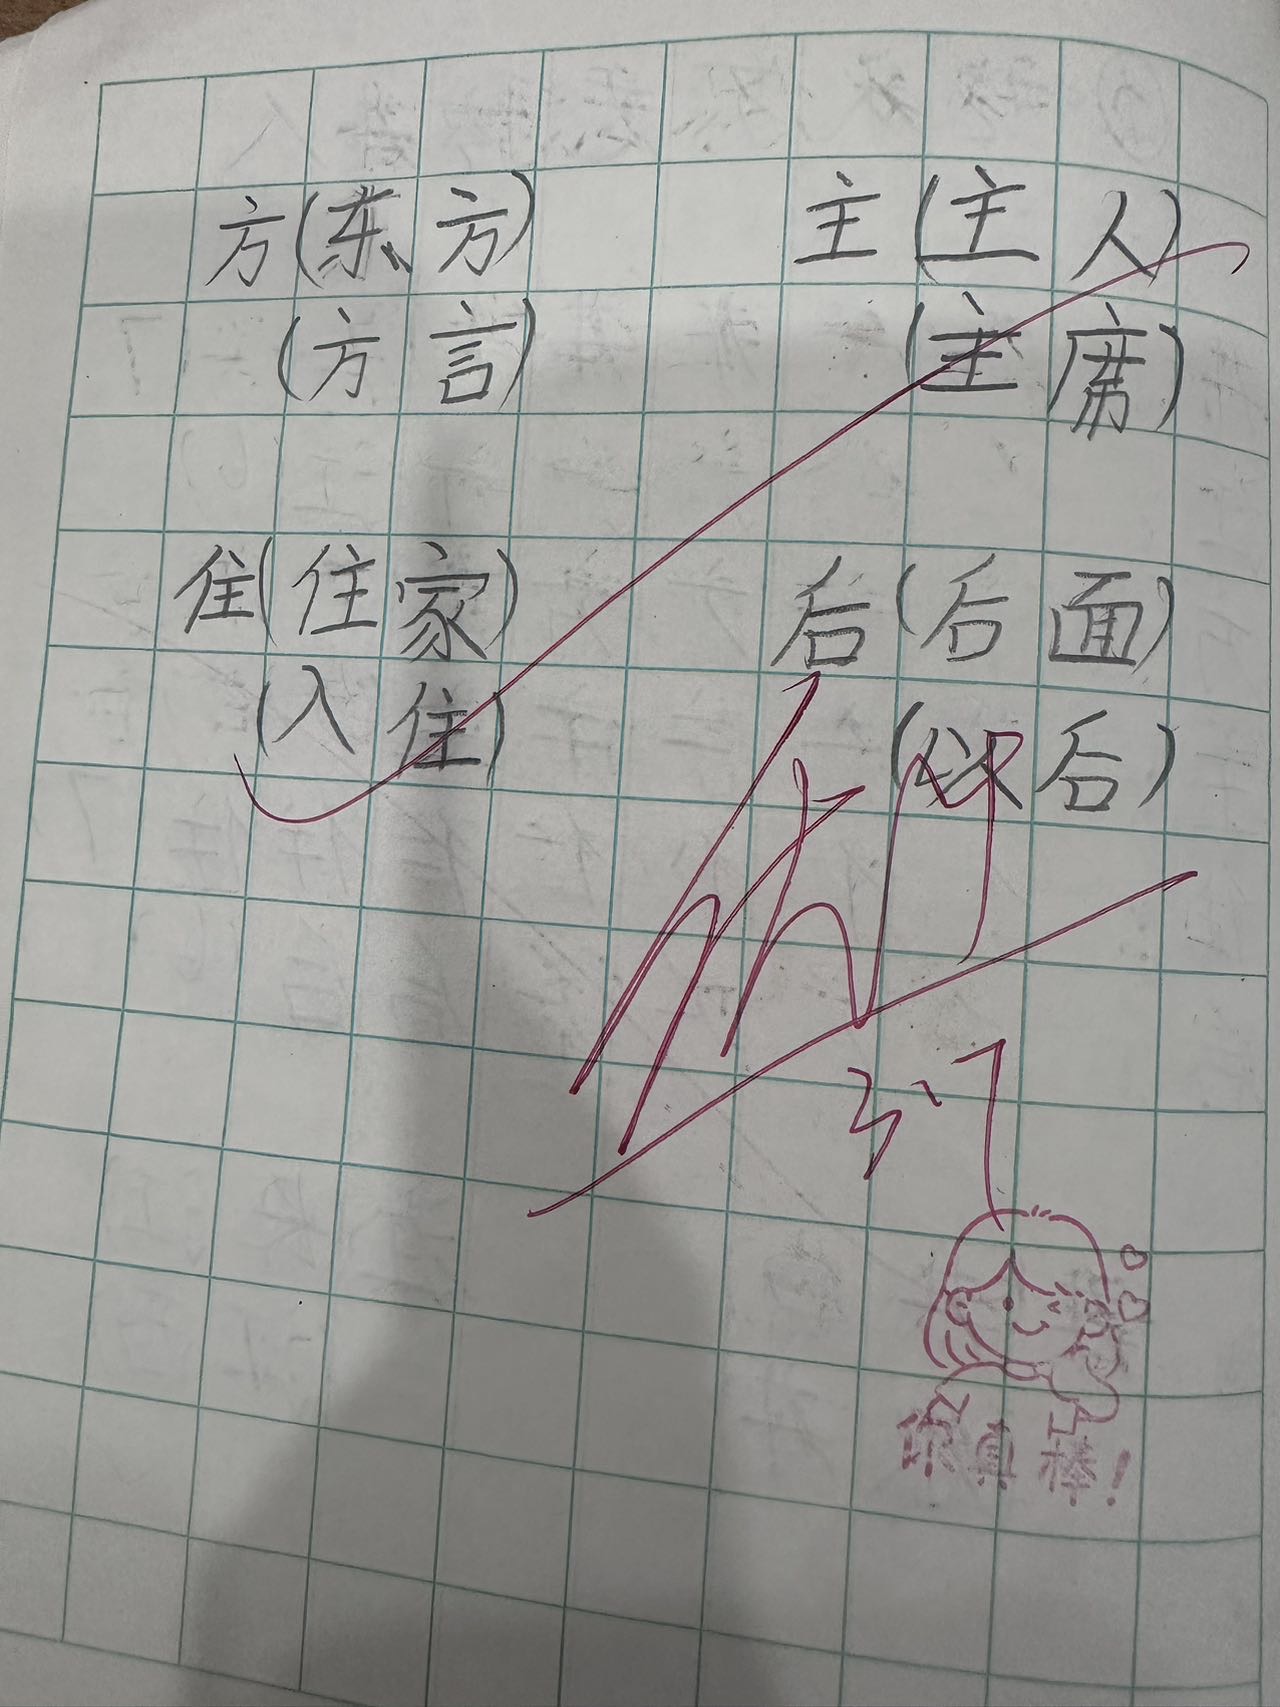 方(东方) 主(主人)
(方言) (主席)
住(住家) 后(后面)
(入住) (以后)
你真棒!